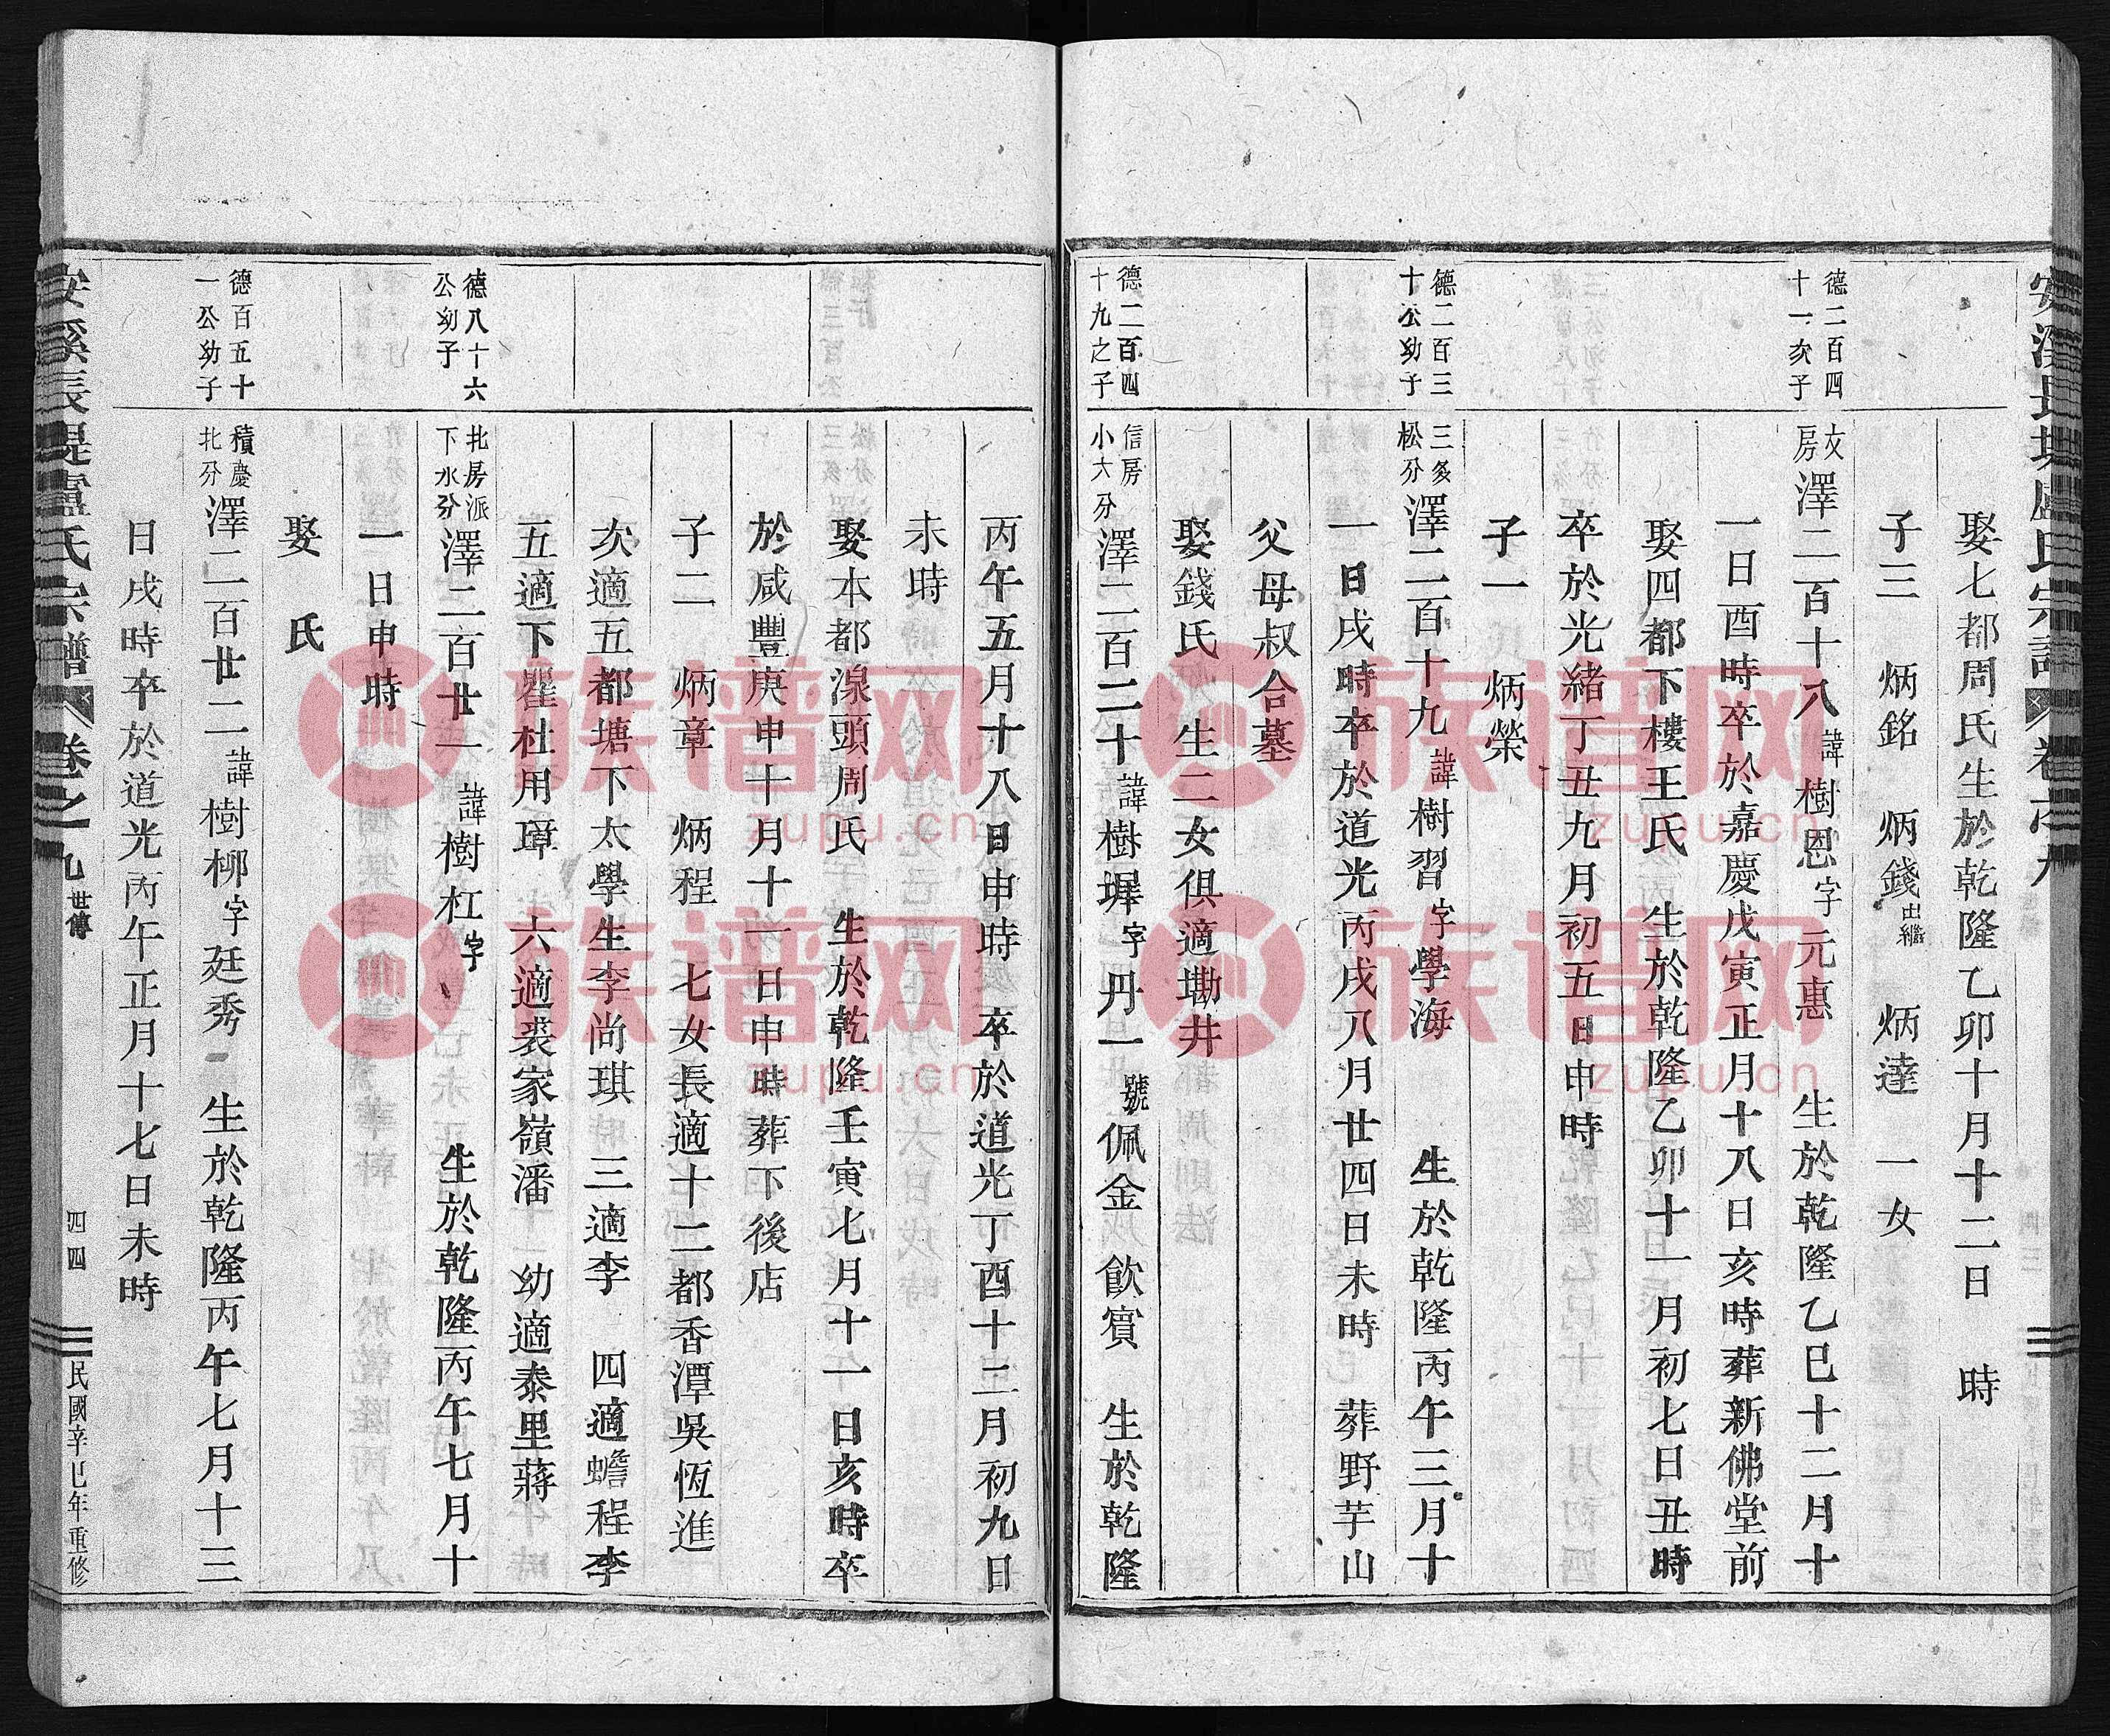 娶七都周氏生於乾隆乙卯十月十二日 時
子三 炳銘 炳錢出繼 炳達 一女
德二百四十一次子
文房 澤二百十八諱樹恩字元惠 生於乾隆乙巳十二月十
一日酉時卒於嘉慶戊寅正月十八日亥時葬新佛堂前
娶四都下樓王氏 生於乾隆乙卯十一月初七日丑時
卒於光緒丁丑九月初五日申時
子一 炳榮
德二百三十公幼子
三多松分 澤二百十九諱樹習字學海 生於乾隆丙午三月十
一日戌時卒於道光丙戌八月廿四日未時 葬野芋山
父母叔合墓
娶錢氏 生二女俱適墈井
德二百四十九之子
信房小大分 澤二百二十諱樹墀字丹一號佩金 飲賓 生於乾隆
丙午五月十八日申時 卒於道光丁酉十二月初九日
未時
娶本都湶頭周氏 生於乾隆壬寅七月十一日亥時卒
於咸豐庚申十月十一日申時葬下後店
子二 炳章 炳程 七女長適十二都香潭吳恆進
次適五都塘下太學生李尚琪 三適李 四適蟾程李
五適下瞿杜用璋 六適裘家嶺潘 幼適泰里蔣
德八十六公幼子
北房派下水分 澤二百廿一諱樹杠字 生於乾隆丙午七月十
一日申時
娶 氏
德百五十一公幼子
積慶北分 澤二百廿二諱樹柳字廷秀 生於乾隆丙午七月十三
日戌時卒於道光丙午正月十七日未時
安溪長堤盧氏宗譜 卷之九 世傳 四四 民國辛巳年重修